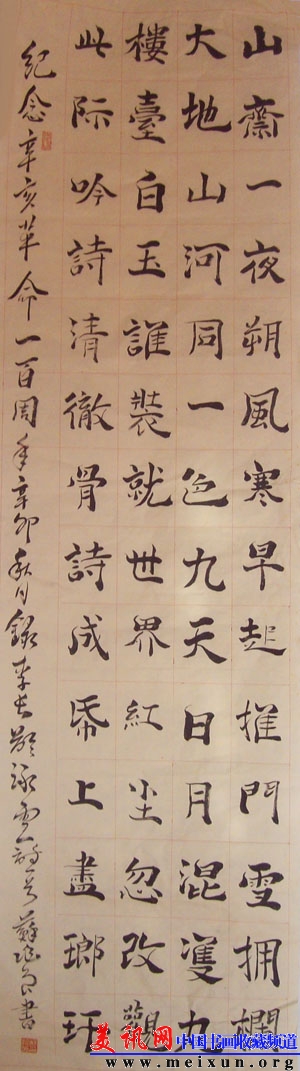 山齋一夜朔風寒早起推門雪拥欄
大地山河同一色九天日月混隻丸
樓臺白玉誰裝就世界紅尘忽改觀
此际吟詩清徹骨詩成帋上盡瑯玕
紀念辛亥革命一百周年辛卯秋月錄李長齡詠雪詩 蘇書
美讯网 中国书画收藏频道
www.meixun.org